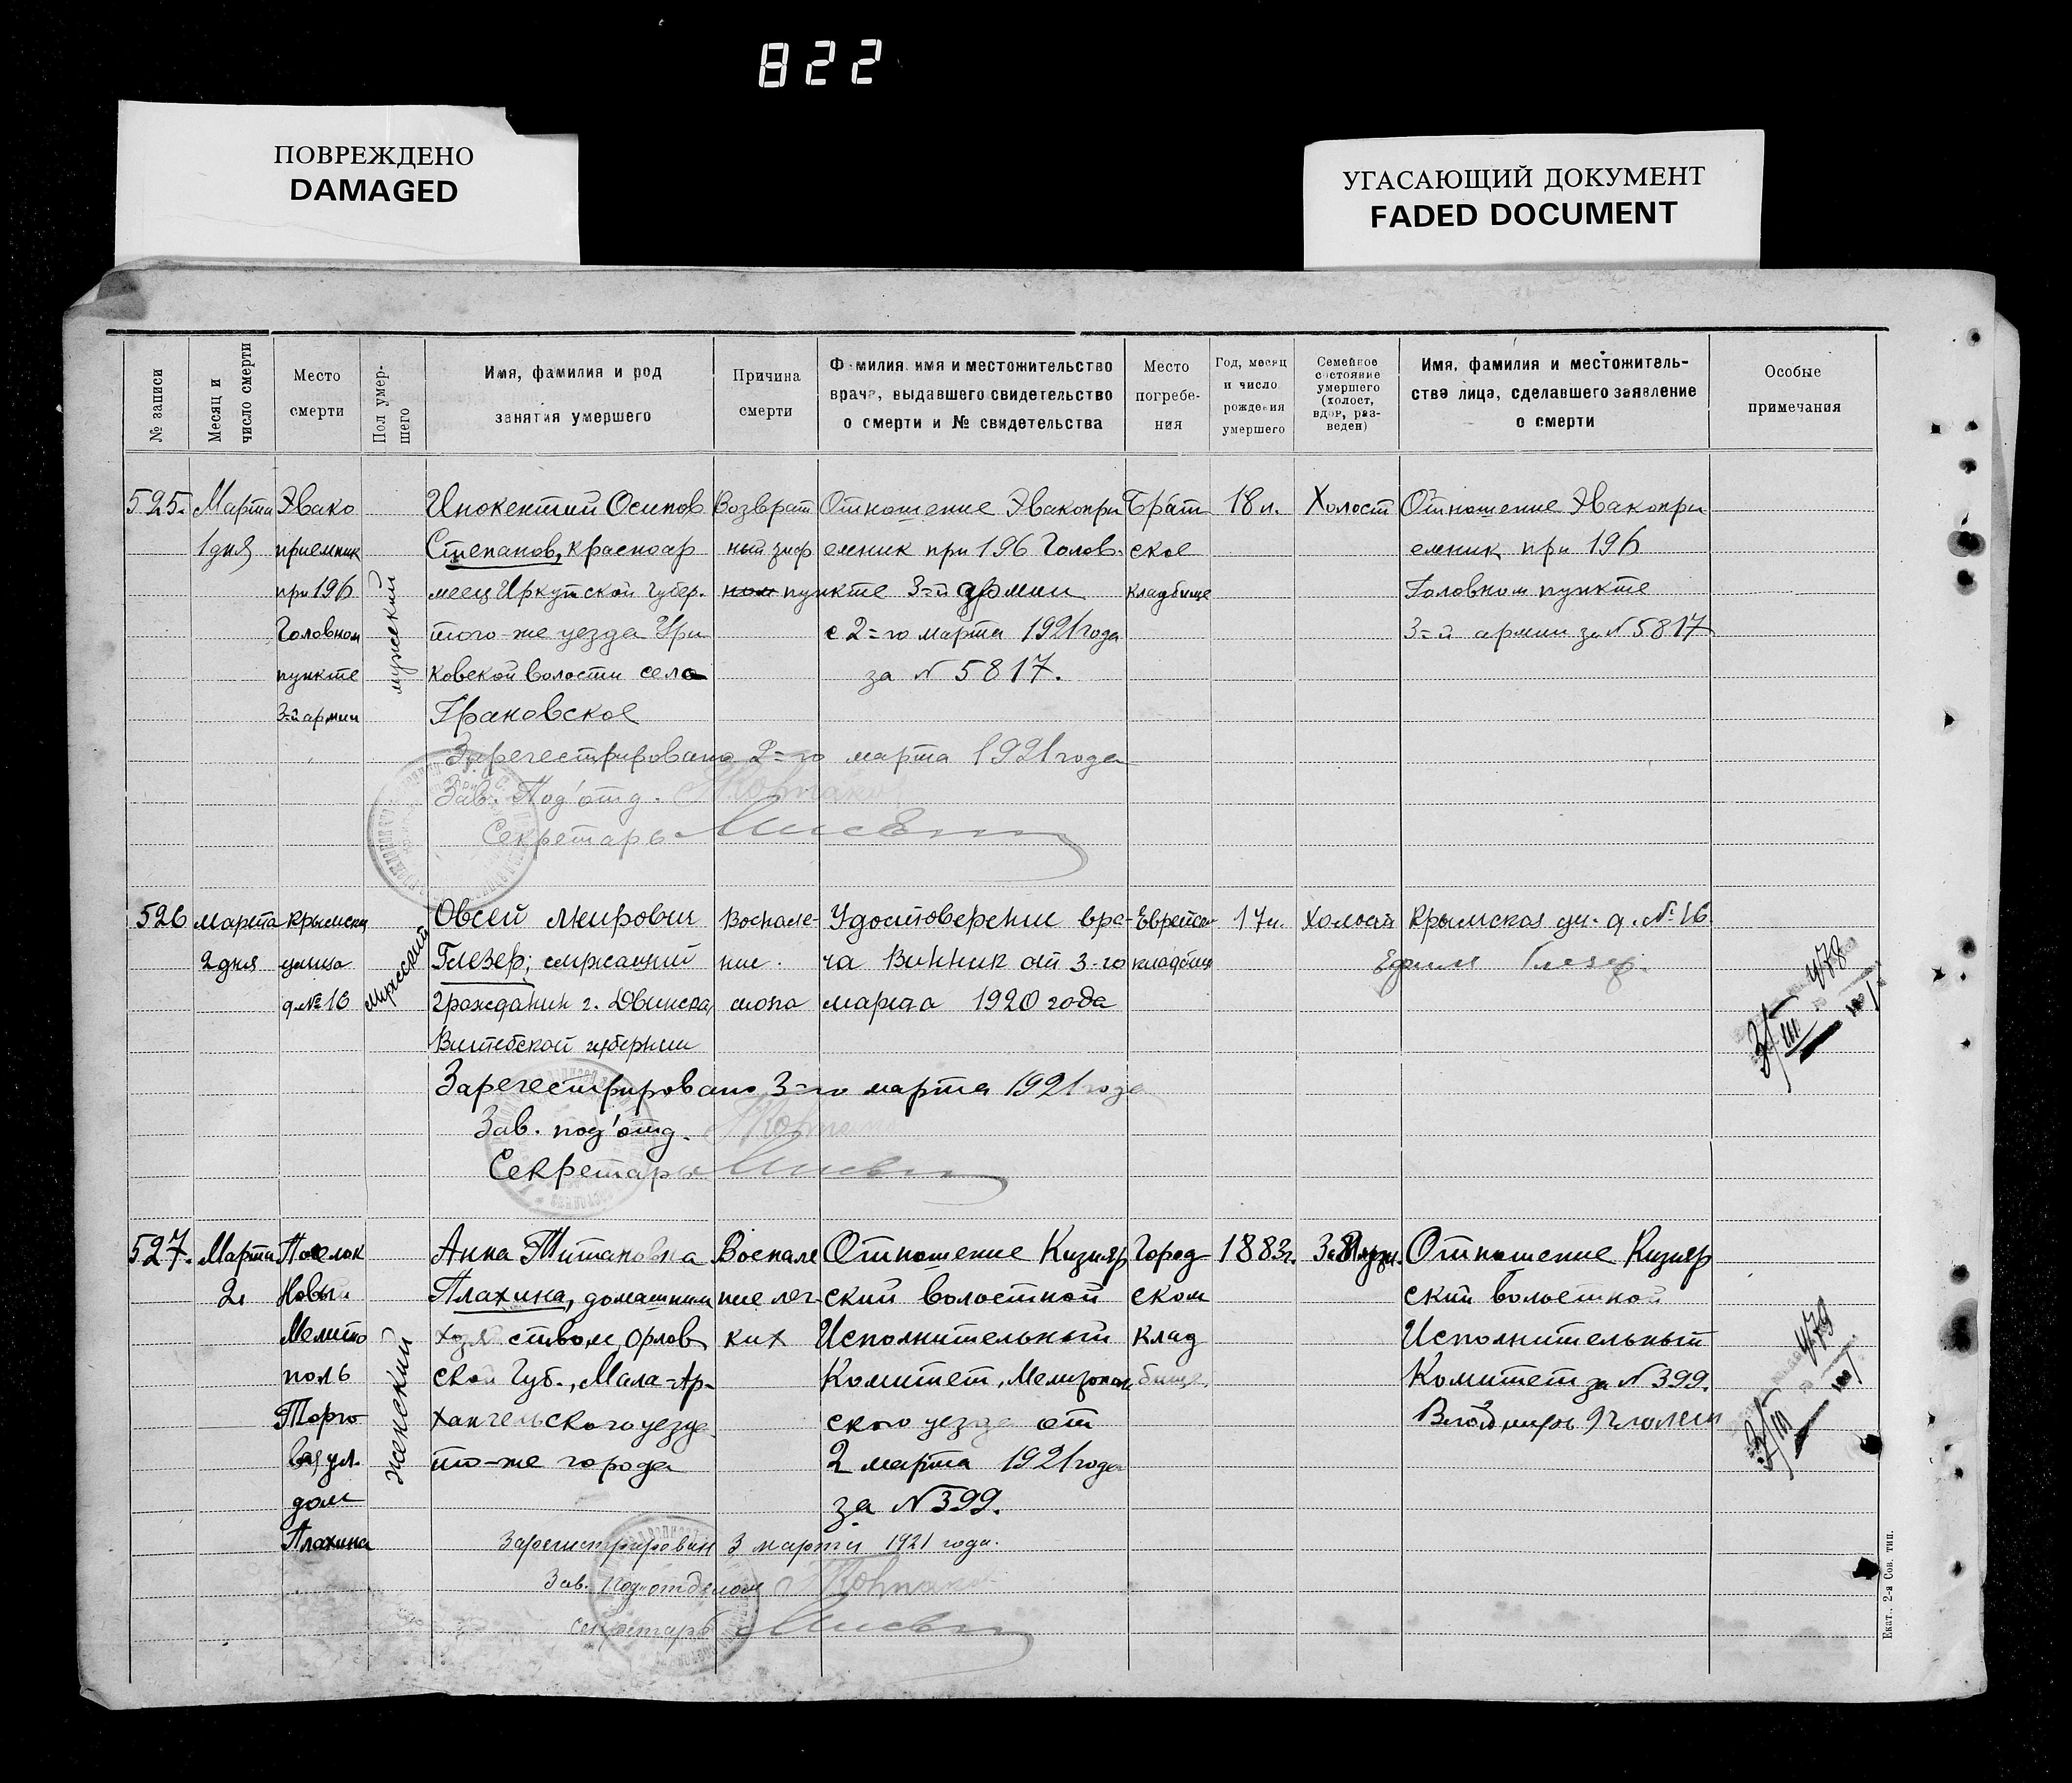 822
ПОВРЕЖДЕНО
DAMAGED
УГАСАЮЩИЙ ДОКУМЕНТ
FADED DOCUMENT
№ записи
Месяц и
число смерти
Место
смерти
Пол умер-
шего
Имя, фамилия и род
занятия умершего
Причина
смерти
Фамилия имя и местожительство
врача, выдавшего свидетельство
о смерти и № свидетельства
Место
погребе-
ния
Год, месяц
и число
рождения
умершего
Семейное
состояние
умершего
(холост,
вдов, раз-
веден)
Имя, фамилия и местожитель-
ства лица, сделавшего заявление
о смерти
Особые
примечания
525.
Марта
1 дня
Эвако
приемник
при 196
Головном
пункте
3=й армии
мужский
Инокентий Осипов
Степанов, красноар
меец Иркутской губер.
того-же уезда Ури
ковской волости села
Грановское
Возврат
ный
Отношение Эвакопри
емник при 196 Голов.
ном пункте 3=й армии
с 2=го марта 1921 года
за N 5817.
Брат
ское
кладбище
18 л.
Холост
Отношение Эвакопри
емник при 196
Головном пункте
3=й армии за N 5817
Зарегестрировано 2=го марта 1921 года
Зав. Под'отд.
Секретарь
526
марта
2 дня
Крымская
улица
д № 16
Мужской
Овсей Мирович
Глезер; служащий
гражданин г. Двинска,
Витебской губернии
Воспале-
ние
Удостоверение вра-
ча Винник от 3-го
марта 1920 года
Еврейск
кладбище
17 л.
Холост
Крымская ул. д. № 16.
Ефим Глезер.
478
3/III
Зарегестрировано 3=го марта 1921 года
Зав. под'отд.
Секретарь
527.
Марта
2
Поселок
Новый
Мелито
поль
Торго
вая ул.
дом
Плахина
женский
Анна Титановна
Плахина, домашним
хозяйством, Орлов
ской Губ., Мала-Ар-
хангельского уезда
то-же города
Воспале
ние лег-
ких
Отношение Кизияр
ский волостной
Исполнительный
Комитет, Мелитополь
ского уезда от
2 марта 1921 года
за N 399.
Город-
ском
клад
бище.
1883 г.
Отношение Кизияр
ский волостной
Исполнительный
Комитет за N 399.
479
3/III
Зарегистрирован 3 марта 1921 года.
Зав. Под-отделом
секретарь
Екат., 2-я Сов. тип.